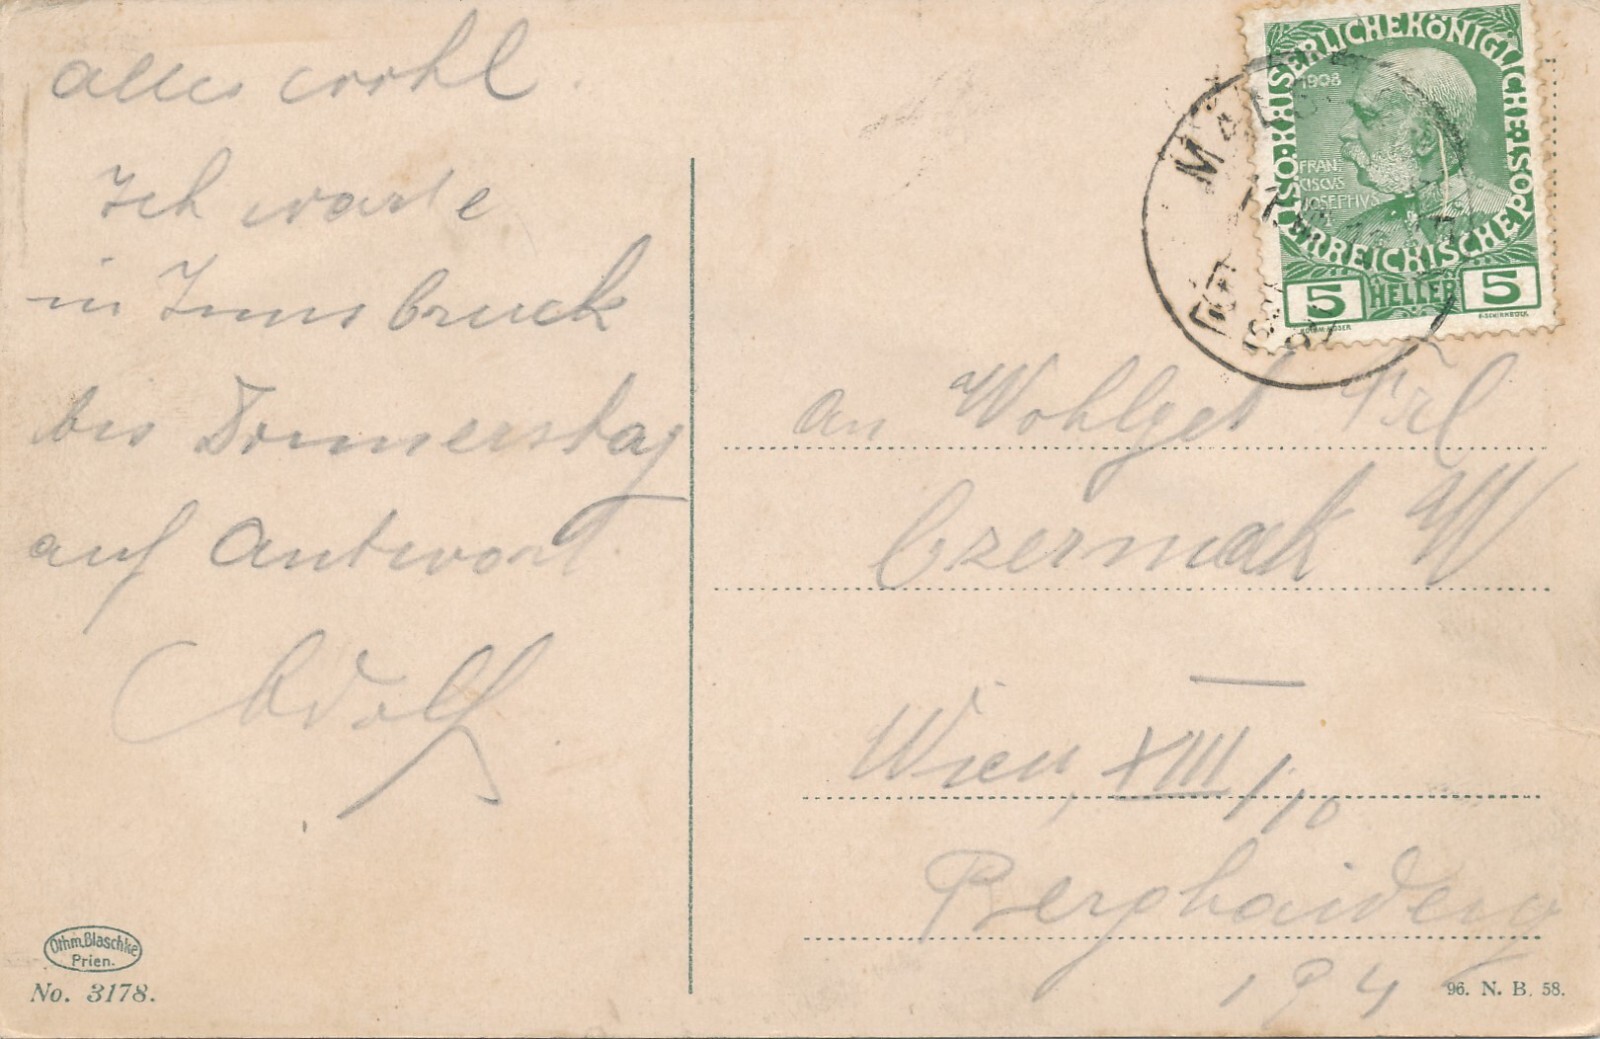 alles wohl.
Ich warte
in Innsbruck
bis Donnerstag
auf Antwort.
Adolf
Othm. Blaschke
Prien.
No. 3178.
ÖSTERREICHISCHE POST
KAISERLICHE KÖNIGLICHE
1908
FRAN
CISCVS
IOSEPHVS
5 HELLER 5
an Wohlget Frl
Czermak W
Wien, XIII/10
Berghaideng
194
96. N. B. 58.